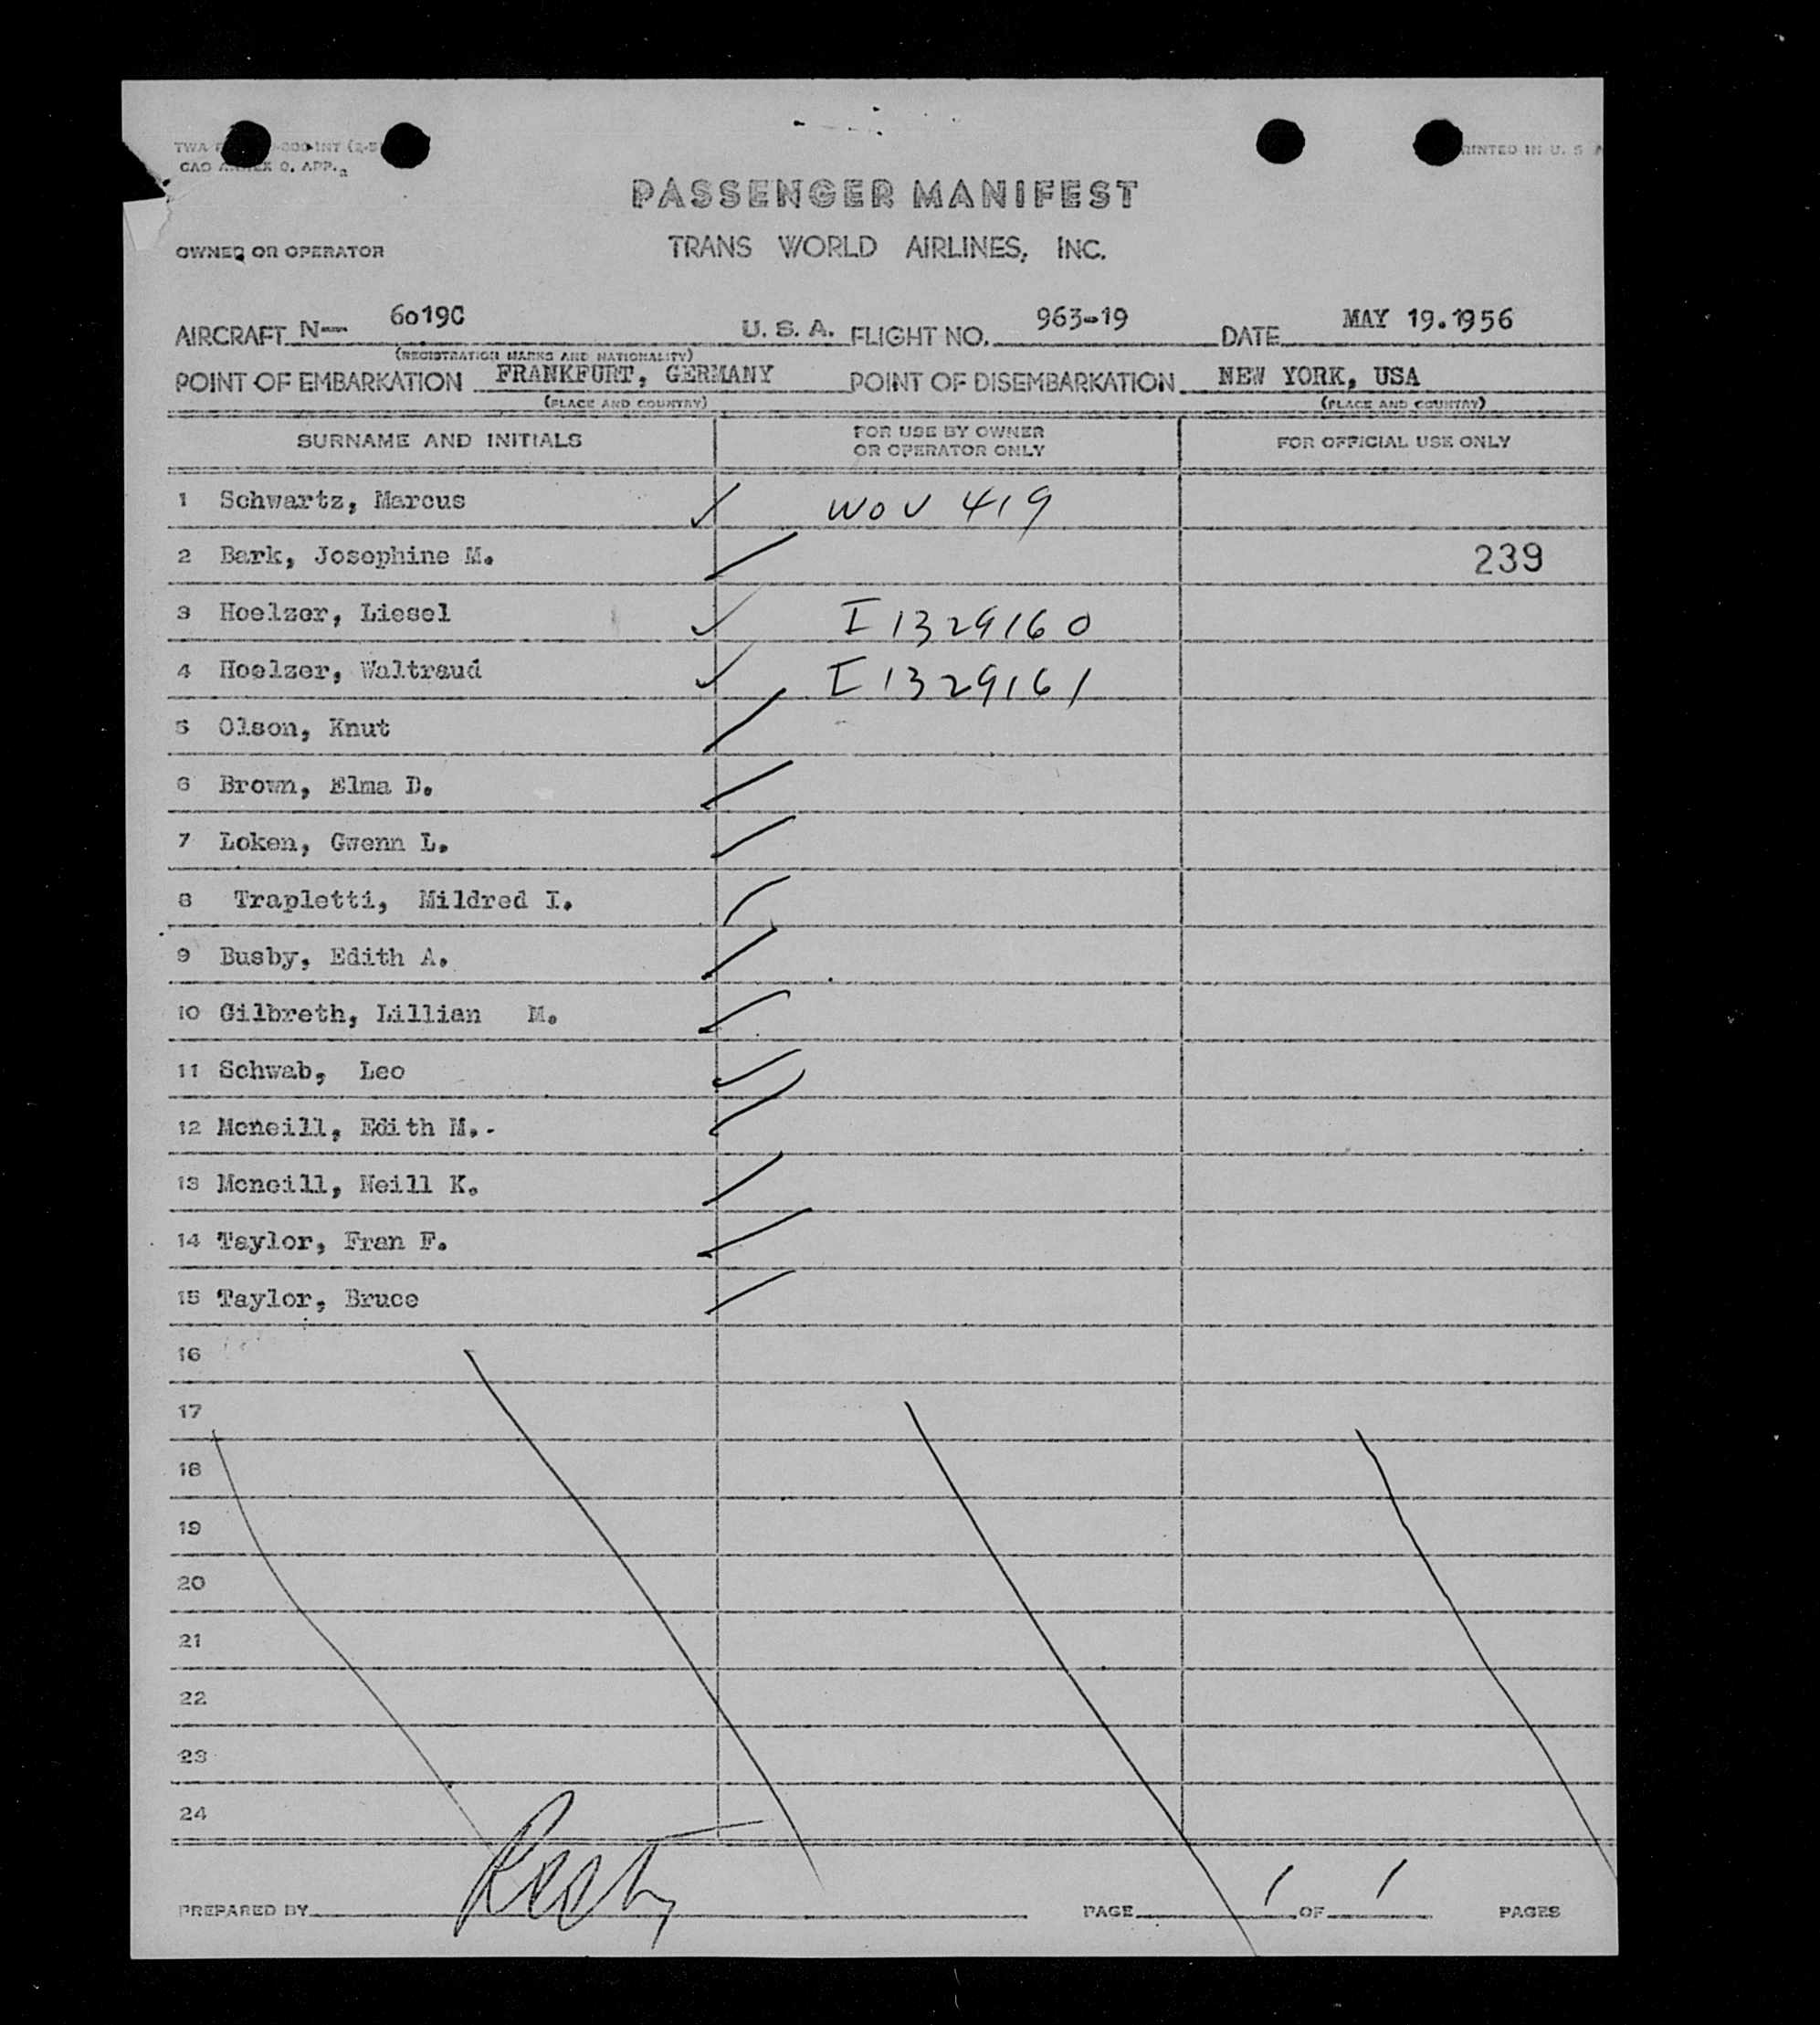 PRINTED IN U. S. A
CAO ANNEX 9, APP. 2
PASSENGER MANIFEST
OWNER OR OPERATOR TRANS WORLD AIRLINES, INC.
AIRCRAFT N— 6019C U. S. A. FLIGHT NO. 963-19 DATE MAY 19.1956
(REGISTRATION MARKS AND NATIONALITY)
POINT OF EMBARKATION FRANKFURT, GERMANY POINT OF DISEMBARKATION NEW YORK, USA
(PLACE AND COUNTRY) (PLACE AND COUNTRY)
SURNAME AND INITIALS FOR USE BY OWNER OR OPERATOR ONLY FOR OFFICIAL USE ONLY
1 Schwartz, Marcus WOV 419
2 Bark, Josephine M. 239
3 Hoelzer, Liesel I 1329160
4 Hoelzer, Waltraud I 1329161
5 Olson, Knut
6 Brown, Elma D.
7 Loken, Gwenn L.
8 Trapletti, Mildred I.
9 Busby, Edith A.
10 Gilbreth, Lillian M.
11 Schwab, Leo
12 Mcneill, Edith M.-
13 Mcneill, Neill K.
14 Taylor, Fran F.
15 Taylor, Bruce
16
17
18
19
20
21
22
23
24
PREPARED BY PAGE 1 OF 1 PAGES